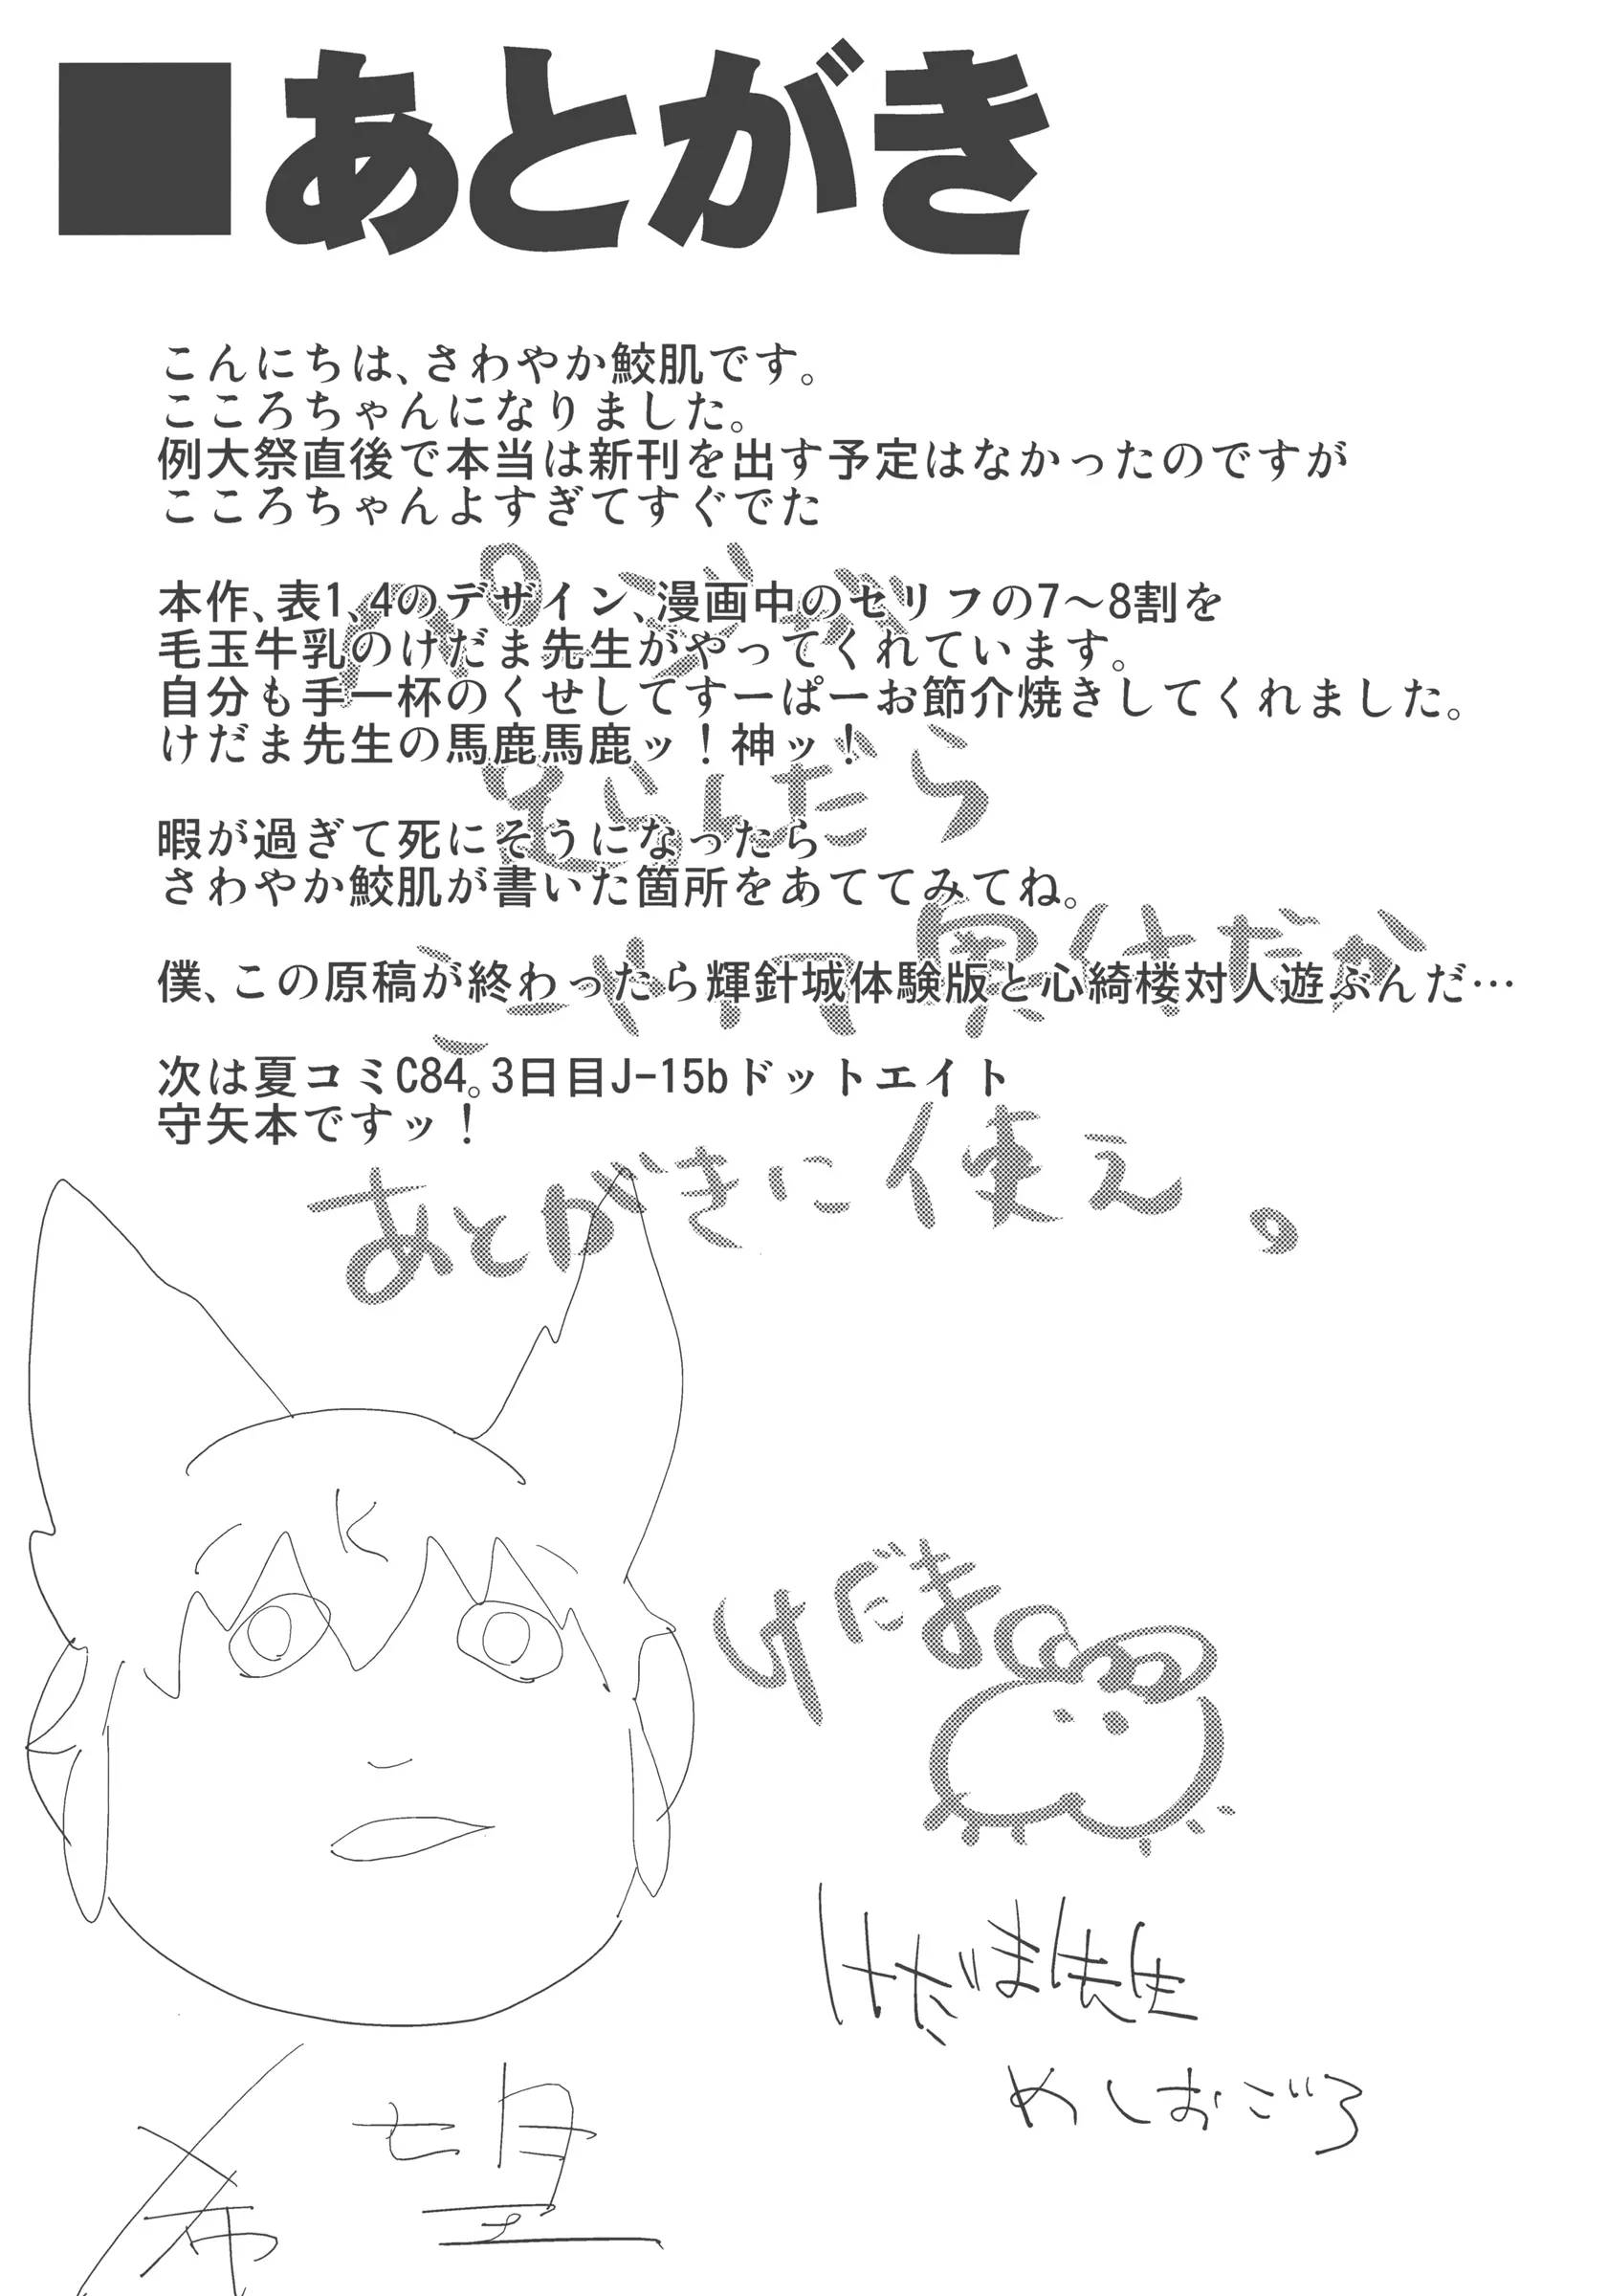 ■あとがき
こんにちは、さわやか鮫肌です。
こころちゃんになりました。
例大祭直後で本当は新刊を出す予定はなかったのですが
こころちゃんよすぎてすぐでた
本作、表1、4のデザイン、漫画中のセリフの7～8割を
毛玉牛乳のけだま先生がやってくれています。
自分も手一杯のくせしてすーぱーお節介焼きしてくれました。
けだま先生の馬鹿馬鹿ッ！神ッ！
暇が過ぎて死にそうになったら
さわやか鮫肌が書いた箇所をあててみてね。
僕、この原稿が終わったら輝針城体験版と心綺楼対人遊ぶんだ…
次は夏コミC84。3日目J-15bドットエイト
守矢本ですッ！
ページが
足らんだら
これ
あとがきに使え。
けだま
けだま先生
めしおごろ
希望